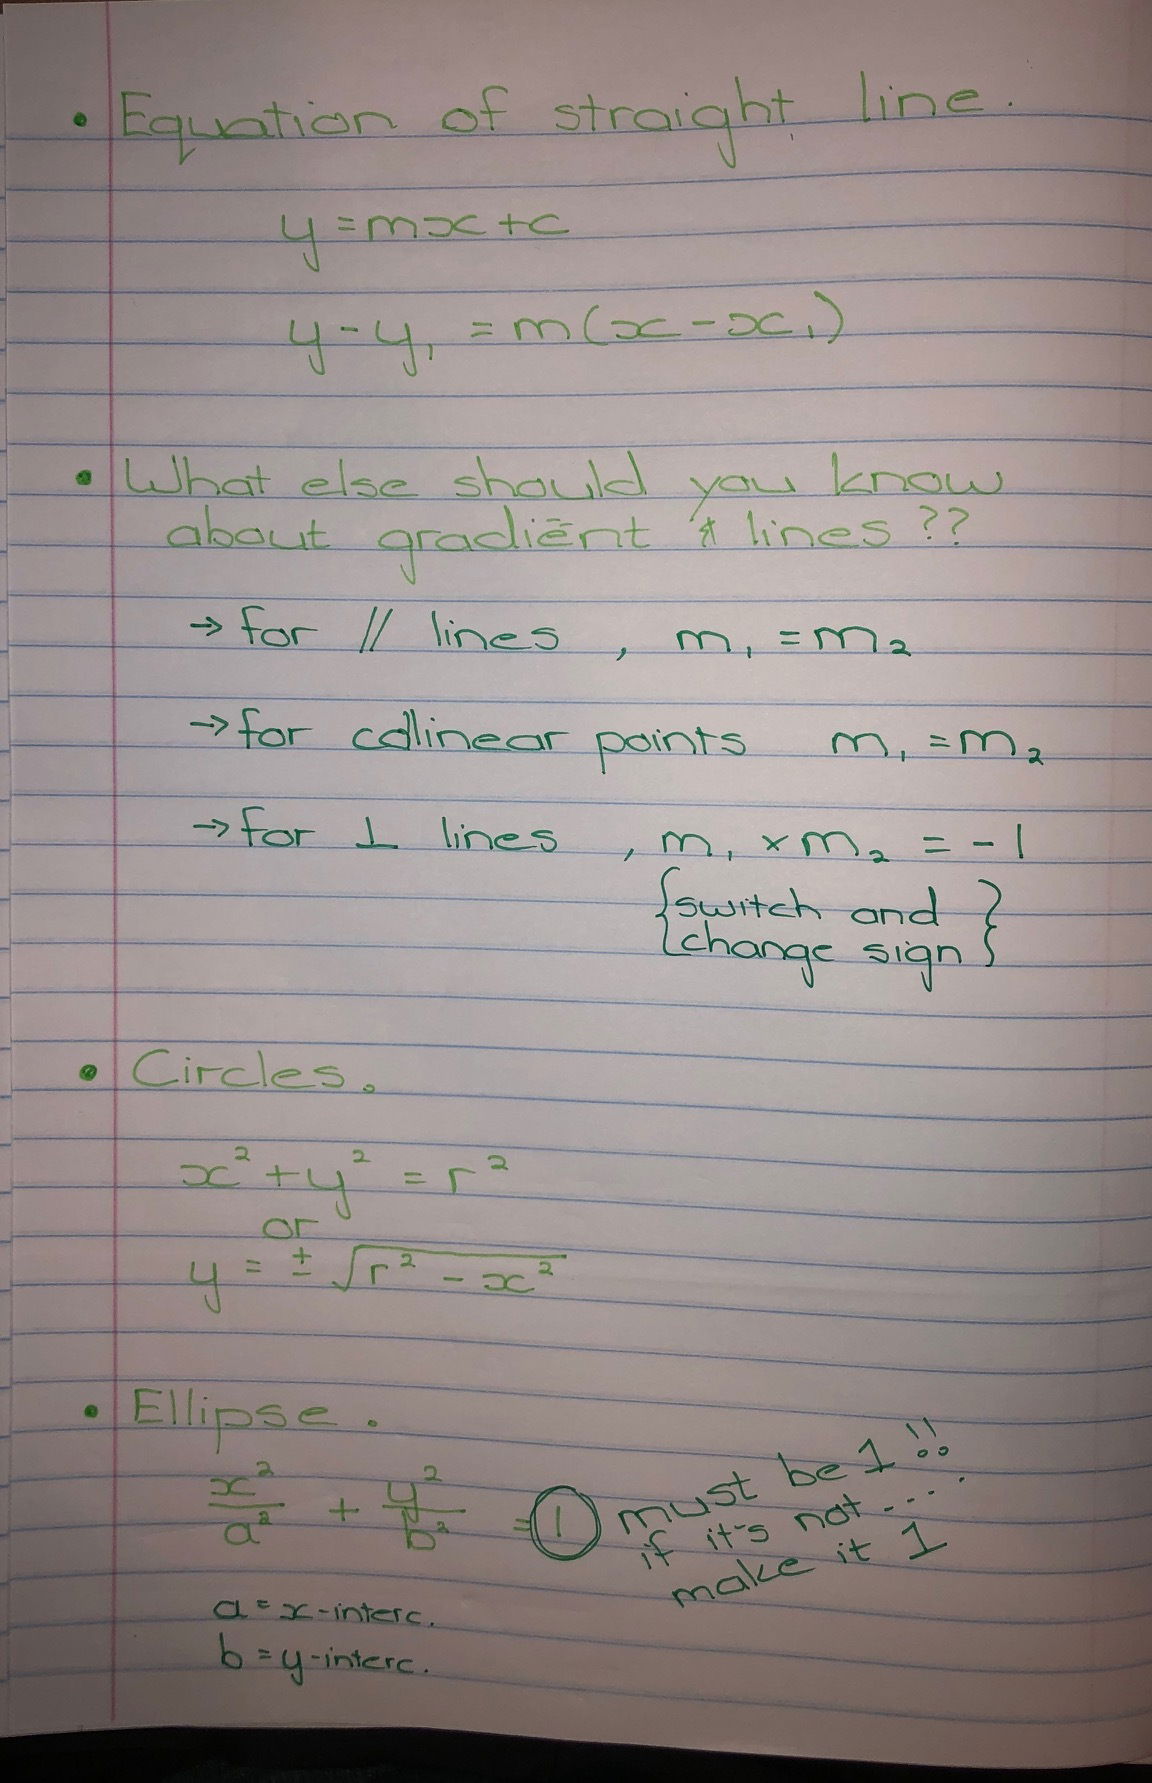 • Equation of straight line.
y = mx + c
y - y₁ = m(x - x₁)
• What else should you know
about gradient & lines ??
→ for // lines , m₁ = m₂
→ for collinear points m₁ = m₂
→ for ⊥ lines , m₁ × m₂ = -1
{switch and
change sign}
• Circles.
x² + y² = r²
or
y = ± √(r² - x²)
• Ellipse.
x²/a² + y²/b² = 1
must be 1 !!
if it's not....
make it 1
a = x-interc.
b = y-interc.